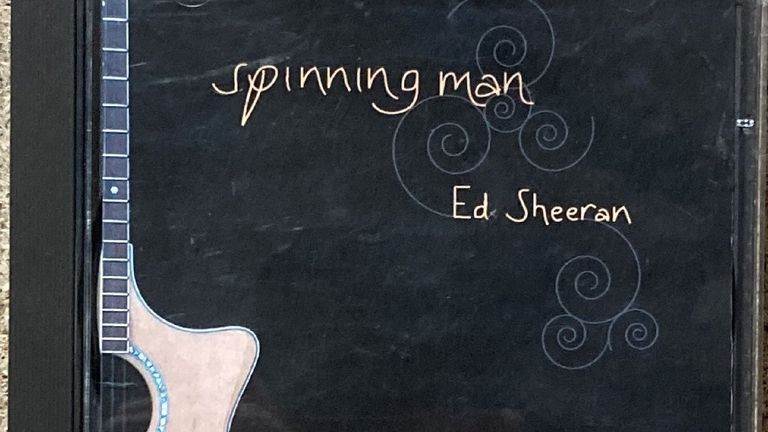 spinning man
Ed Sheeran